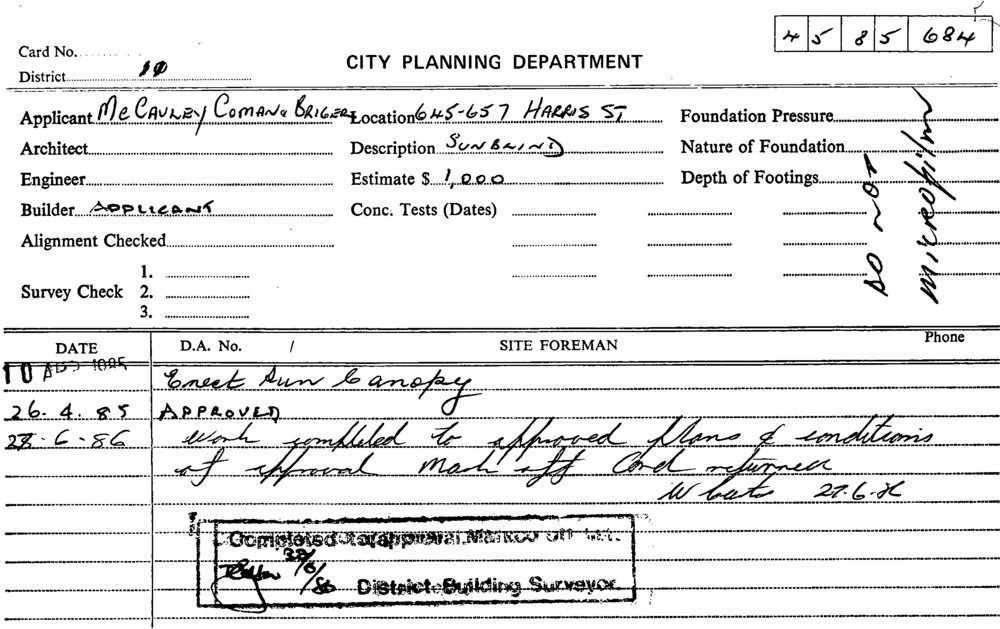 45 85 684
Card No.
District 10
CITY PLANNING DEPARTMENT
Applicant McCauley Coman & Briger Location 645-657 HARRIS ST, Foundation Pressure
Architect Description SUNBLIND Nature of Foundation
Engineer Estimate $ 1,000 Depth of Footings
Builder APPLICANT Conc. Tests (Dates)
Alignment Checked
DO NOT
microfilm
1.
Survey Check 2.
3.
DATE D.A. No. / SITE FOREMAN Phone
10 APR 1985 Erect Sun Canopy
26. 4. 85 APPROVED
6. 86 Work completed to approved plans & conditions
of approval Mark off Card returned
W 27.6.86
Completed to approval Marked off
/6/86 District Building Surveyor